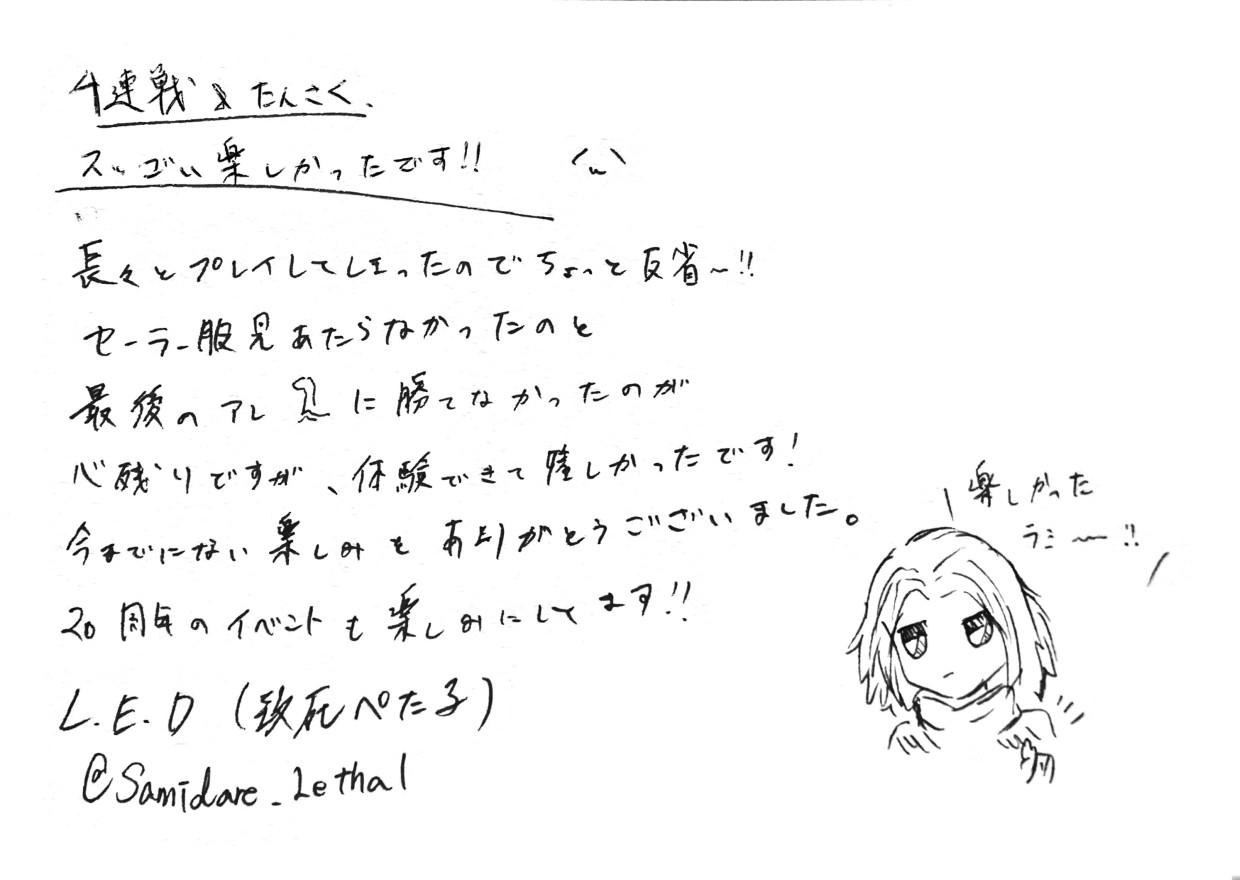 4連戦&たんさく、
スッゴい楽しかったです!!
長々とプレイしてしまったのでちょっと反省〜!!
セーラー服見あたらなかったのと
最後のアレ に勝てなかったのが
心残りですが、体験できて嬉しかったです!
今までにない楽しみをありがとうございました。
20周年のイベントも楽しみにしてます!!
L.E.D (致死ぺた子)
@Samidare_Lethal
楽しかった
ラミ〜!!